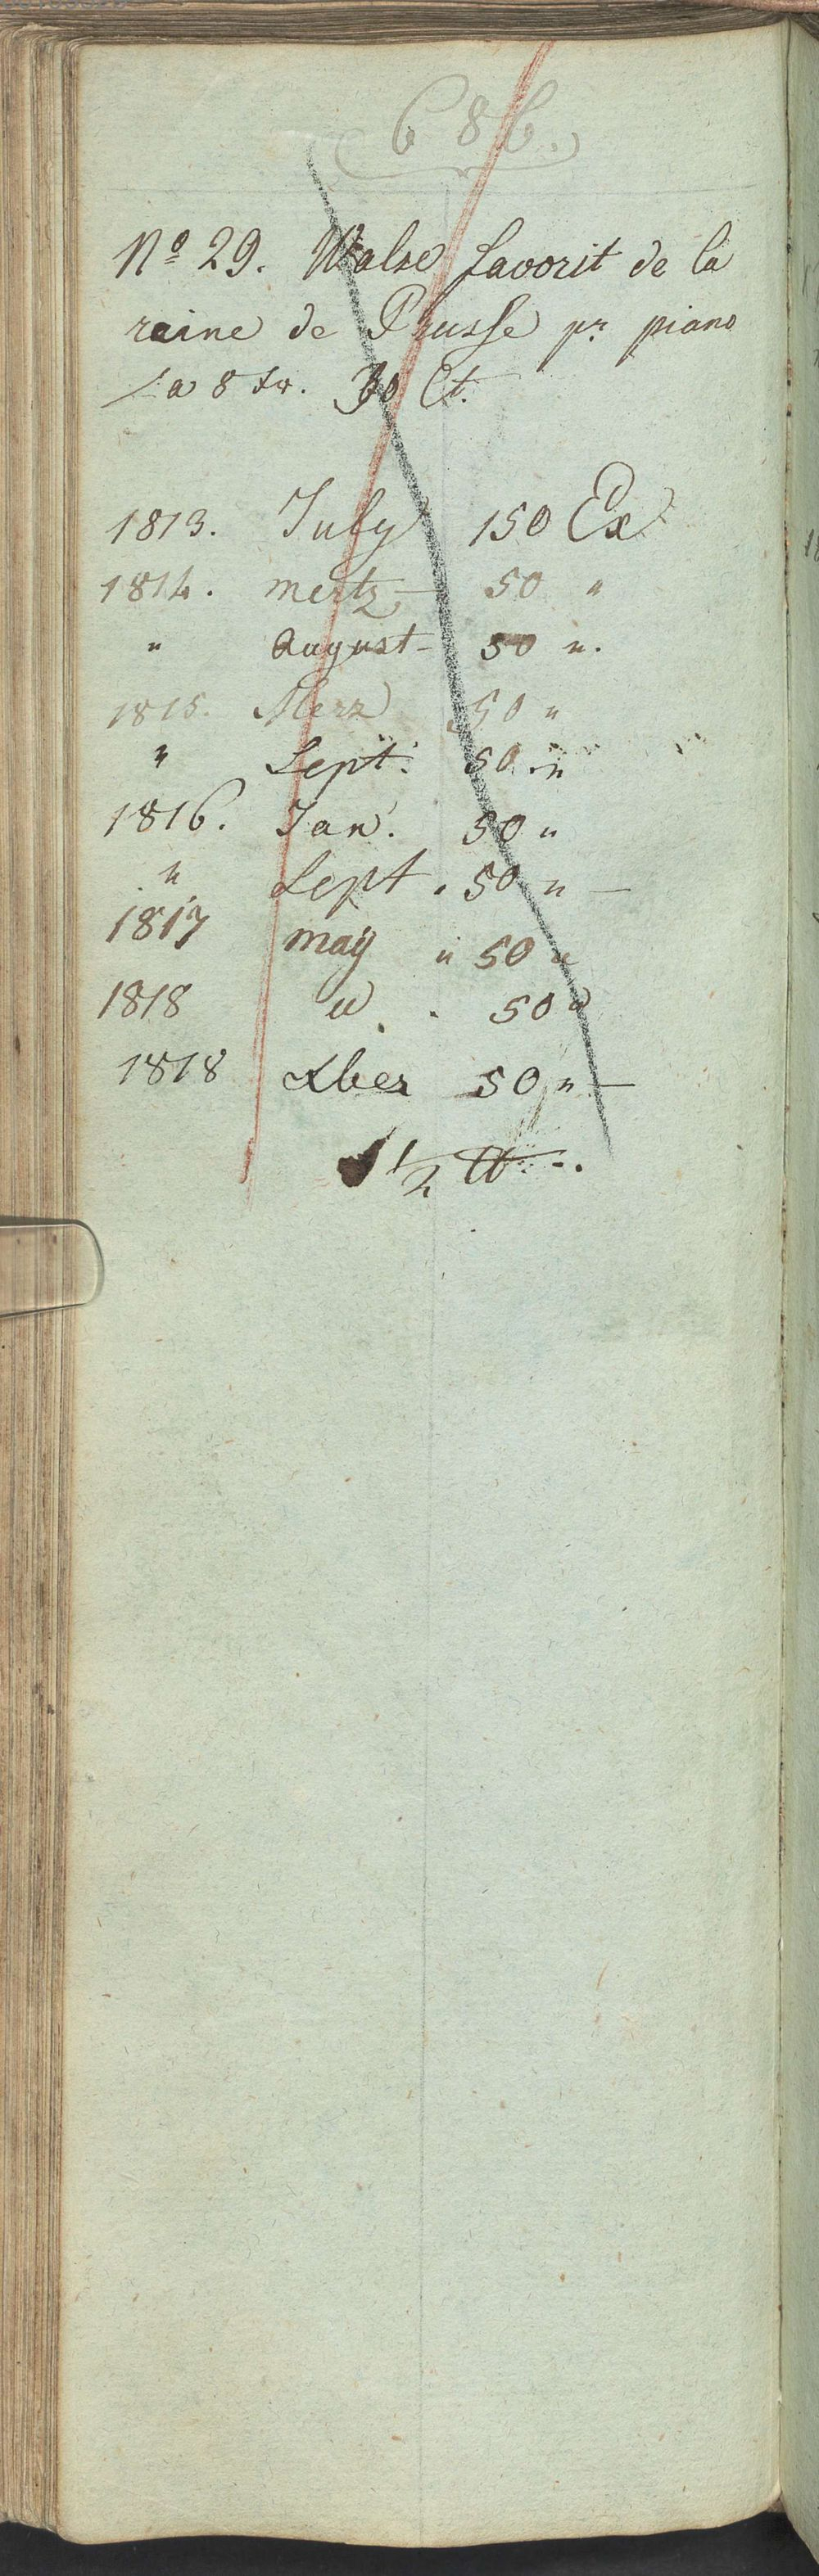 686.
Nº 29. Walse favorit de la
raine de Prusse pr piano
a 8 xr. 30 Ct.
1813. July 150 Ex
1814. mertz - 50 "
" August - 50 ".
1815. Merz 50 "
" Sept. 50 "
1816. Jan. 50 "
" Sept. 50 " -
1817 may " 50 "
1818 " . 50 "
1818 Xber 50 " -
1 1/2